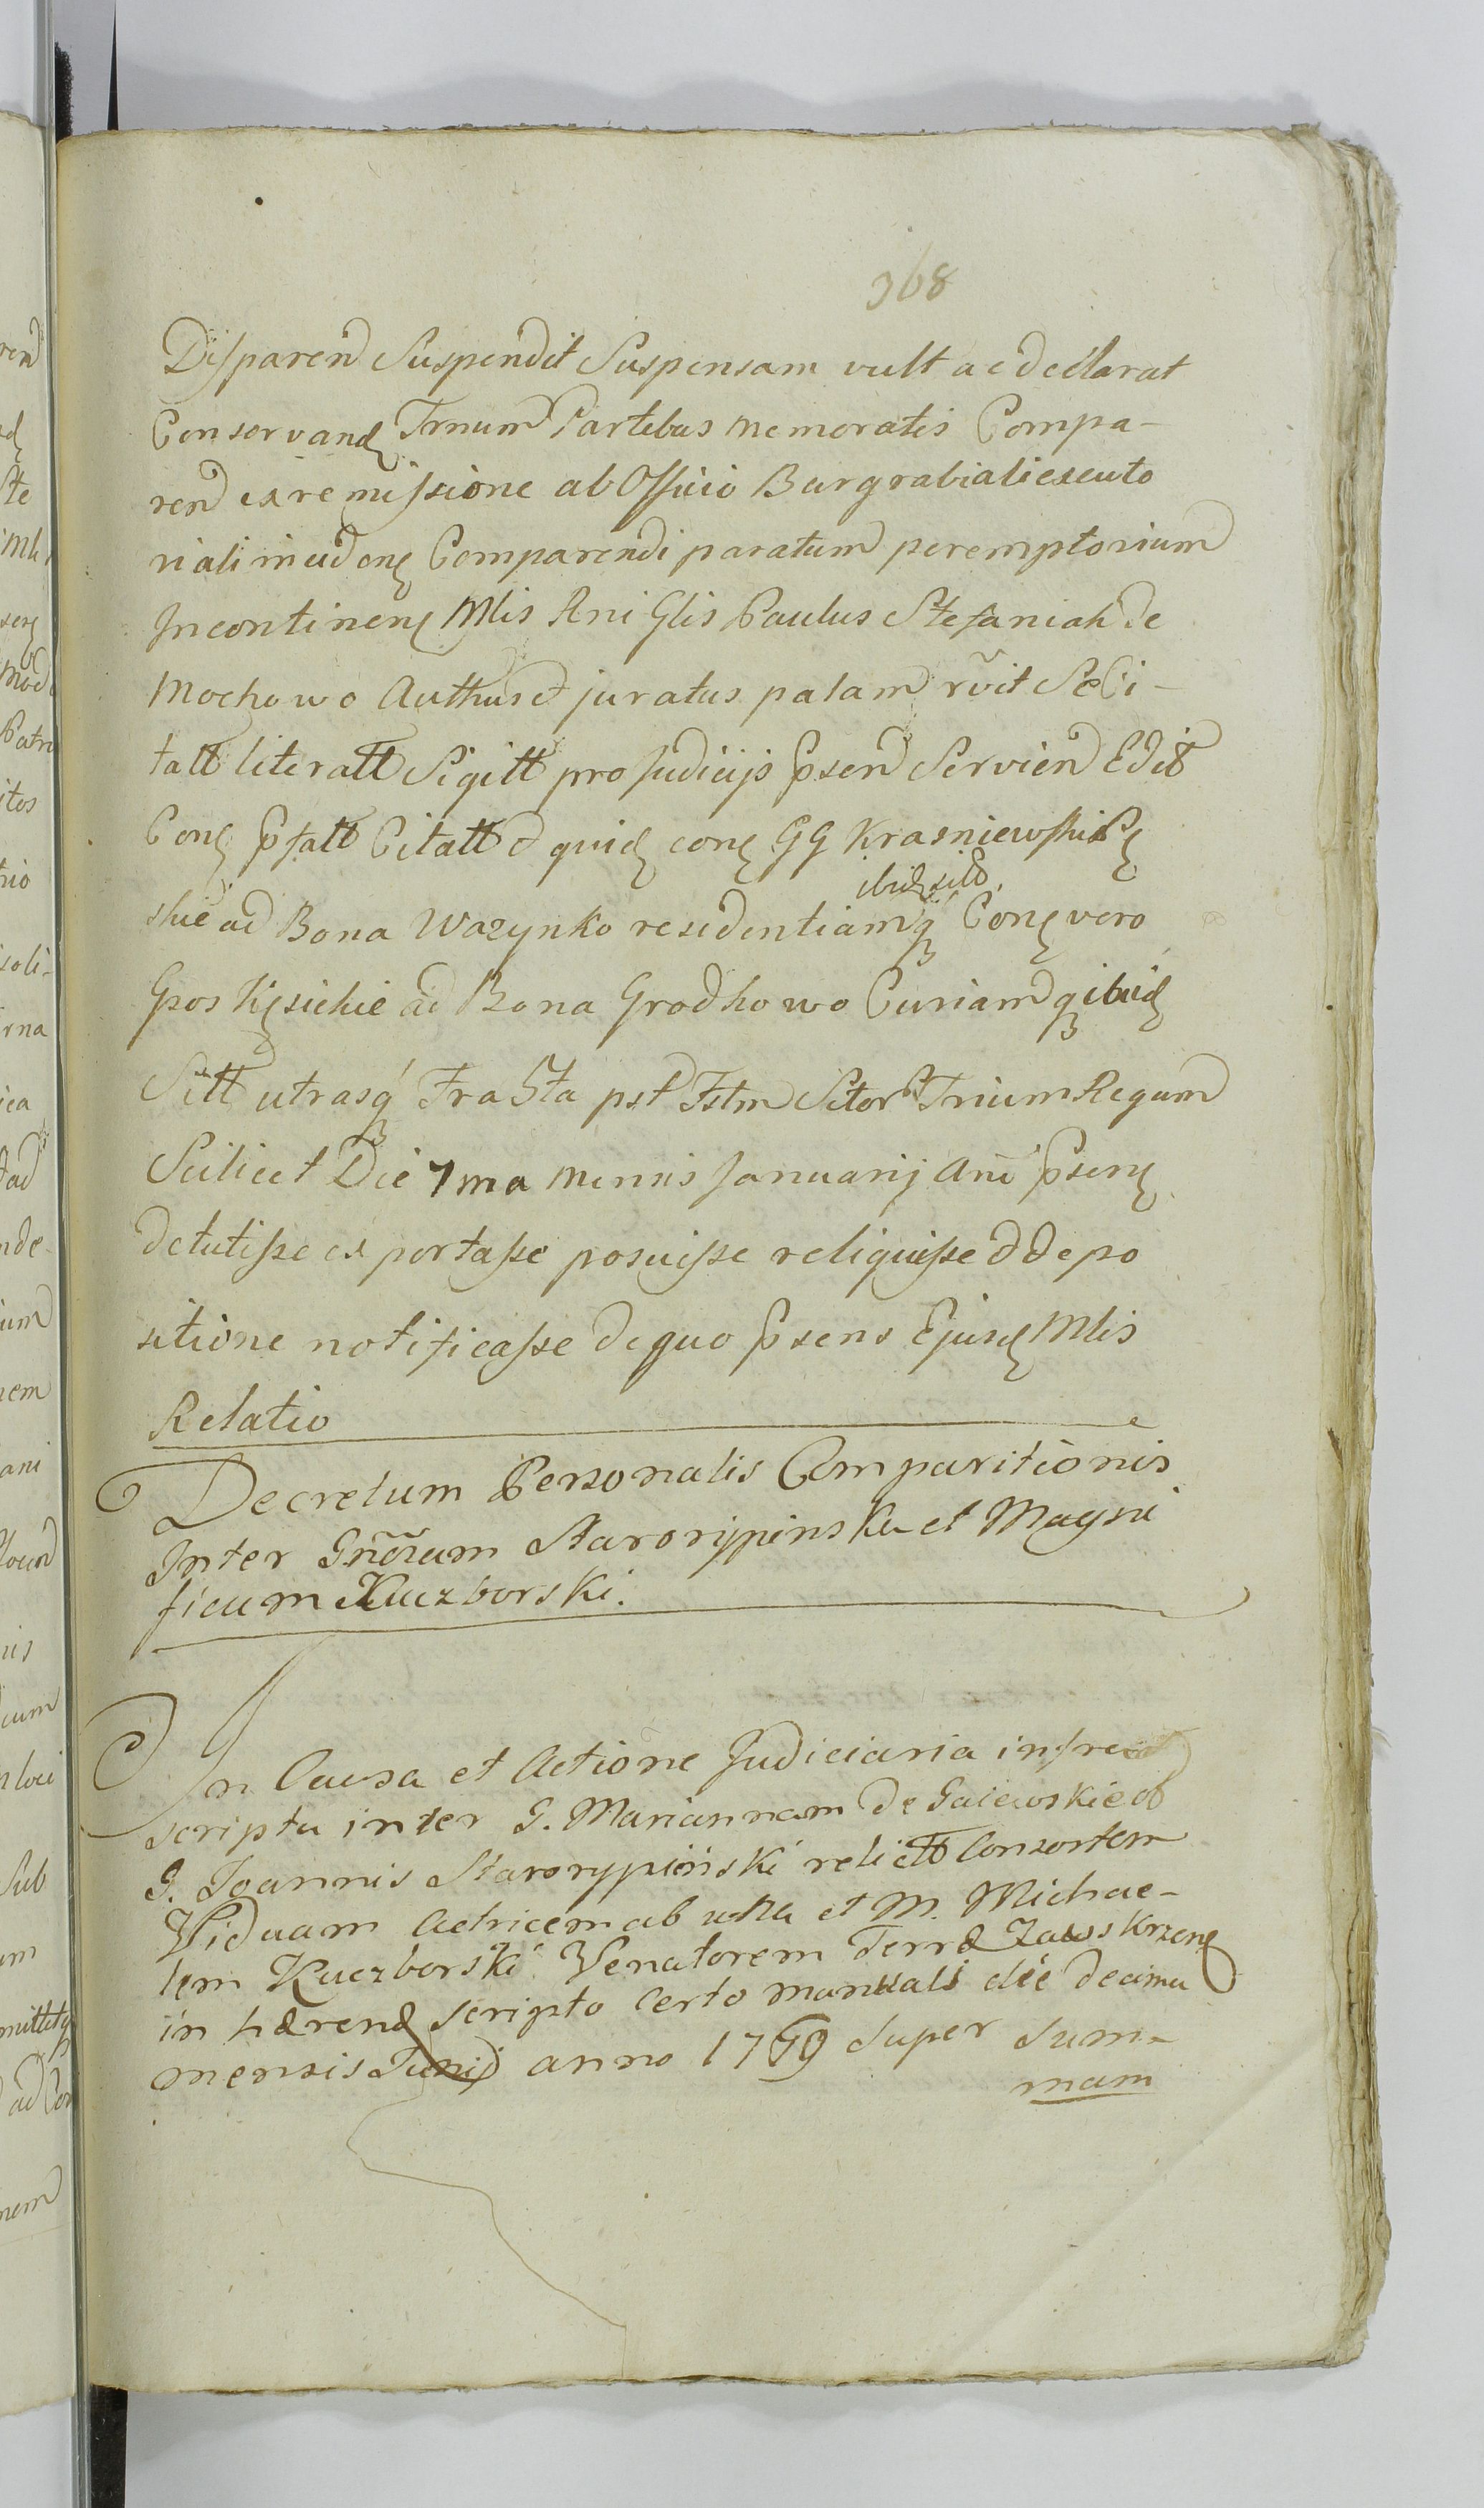 368
Disparend Suspendit Suspensam vult ac declarat
Conservand Trnum Partibus memoratis Compa-
rend ex remissione ab Officio Burgrabiali executo
riali Comparendi paratum peremptorium
Incontinen Mlis Rni Glis Paulus Stefaniak de
Mochowo Authus et juratus palam rvit Se Ci-
tatt literatt Sigitt pro Judicijs psen Servien Edit
Con pfatt Citatt et quid con GG Krasniewskie
ibid sitt
skie ad Bona Wazynko residentiamq Con vero
Gsos Kęsickie ad Bona Grodkowo Curiamq ibid
Sitt utrasq Fra 5ta pst Fstm Sctor Trium Regum
Scilicet Die 7ma mensis Januarij Ani psen
detulisse exportasse posuisse reliquisse et depo
sitione notificasse de quo psens Ejusd Mlis
Relatio
Decretum Personalis Comparitionis
Inter Gnõsam Starorypinska et Magni
ficum Kuczborski.
In Causa et Actione Judiciaria infra
scripta inter G. Mariannam de Gaiewskie
G. Joannis Starorypiński relictt Consortem
Viduam Actricem ab una et M. Michae-
lem Kuczborski Venatorem Terræ Zawskrzen
in hæren scripto Certo manuali die decima
mensis Junij anno super Sum-
mam